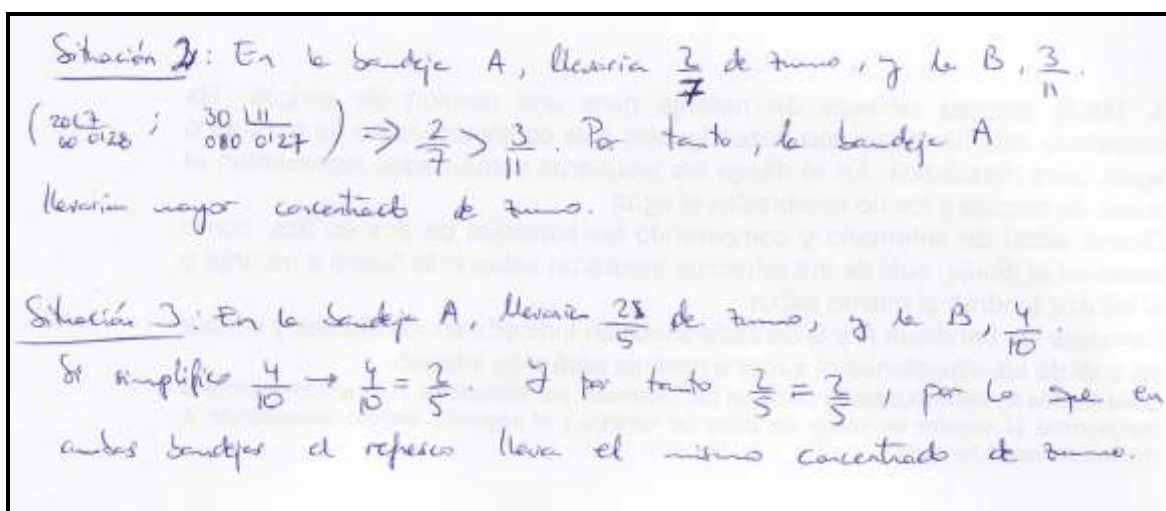 Situación 2: En la bandeja A, llevaría 2/7 de zumo, y la B, 3/11.
(20 7 60 0'28 ; 30 11 080 0'27) ⇒ 2/7 > 3/11. Por tanto, la bandeja A
llevaría mayor concentrado de zumo.
Situación 3: En la bandeja A, llevaría 2/5 de zumo, y la B, 4/10.
Si simplifico 4/10 → 4/10 = 2/5. Y por tanto 2/5 = 2/5, por lo que en
ambas bandejas el refresco lleva el mismo concentrado de zumo.